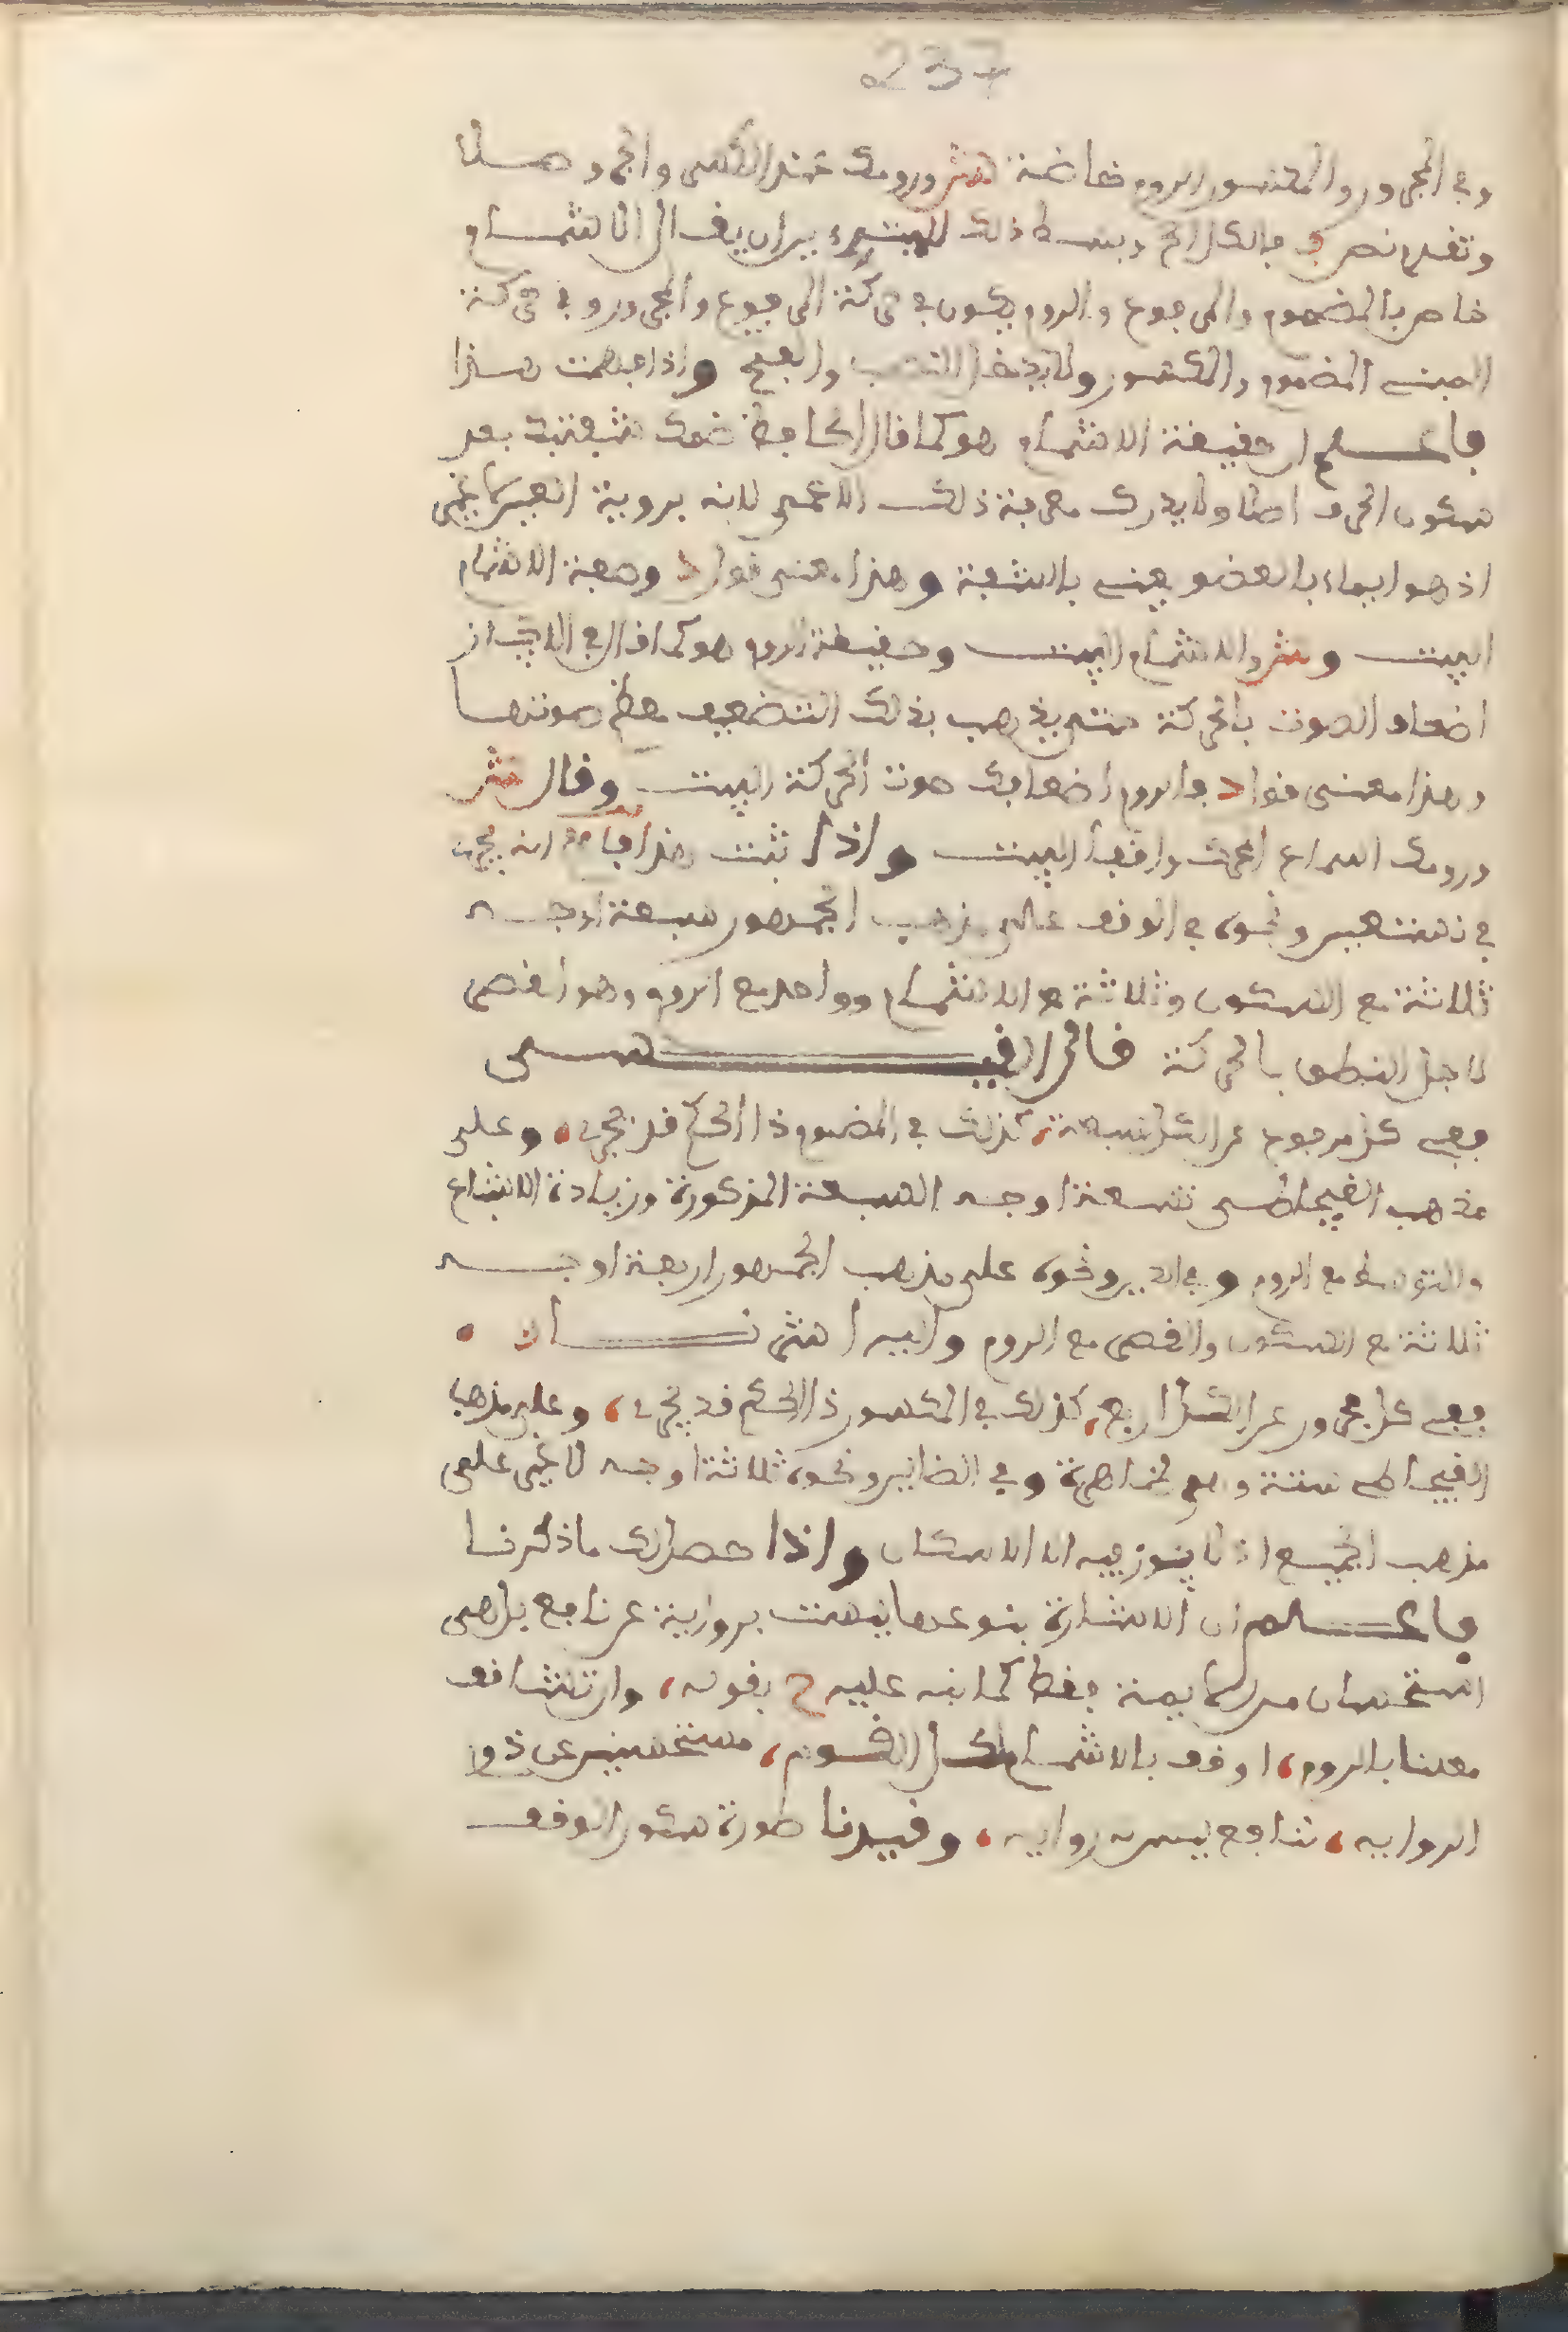 237
وفي المجرور والمكسور الروم خاصة ش ورومك عند الكسر والجر وصلا
وتقدم نص د فالكل الخ وبسط ذلك للمبتدئ بان يقال الاشمام
خاص بالمضموم والمرفوع والروم يكون في حركة المرفوع والمجرور وفي حركة
المبني المضموم والمكسور ولا يدخل النصب والفتح واذا فهمت هذا
فاعلم ان حقيقة الاشمام هو كما قال الحافظ ضمك شفتيك بعد
سكون الحرف اصلا ولا يدرك معرفة ذلك الاعمى لانه بروية العين لا غير
اذ هو ايماء بالعضو يعني بالشفة وهذا معنى قول د وصفة الاشمام
البيت و ش والاشمام البيت وحقيقة الروم هو كما قال في الايجاز
اضعاف الصوت بالحركة حتى يذهب بذلك التضعيف معظم صوتها
وهذا معنى قول د فالروم اضعافك صوت الحركة البيت وقال ش
ورومك اسماع المحرك واقفا البيت واذا ثبت هذا فاعلم انه يجوز
في نستعين ونحوه في الوقف على مذهب الجمهور سبعة اوجه
ثلاثة مع السكون وثلاثة مع الاشمام وواحد مع الروم وهو القصر
لاجل النطق بالحركة قال القيسي
ففي كل مرفوع عن الكل سبعة، كذلك في المضموم ذا الحكم قد يجري، وعلى
مذهب القيجاطي تسعة اوجه السبعة المذكورة وزيادة الاشباع
والتوسط مع الروم وفي الدين ونحوه على مذهب الجمهور اربعة اوجه
ثلاثة مع السكون والقصر مع الروم واليه اشرنا .
ففي كل مجرور عن الكل اربع، كذلك في المكسور ذا الحكم قد يجري، وعلى مذهب
القيجاطي ستة وهي ظاهرة وفي الضالين ونحوه ثلاثة اوجه لا غير على
مذهب الجميع اذ لا يجوز فيه الا الاسكان واذا حصل لك ما ذكرنا
فاعلم ان الاشارة بنوعيها ليست برواية عن نافع بل هي
استحسان من طايفة فقط كما نبه عليه ح بقوله، وان تشا قف
معلنا بالروم، او قف بالاشمام لكل القوم، مستحسنين عن ذوي
الروايه، لنافع ليس به روايه، وقيدنا صورة سكون الوقف